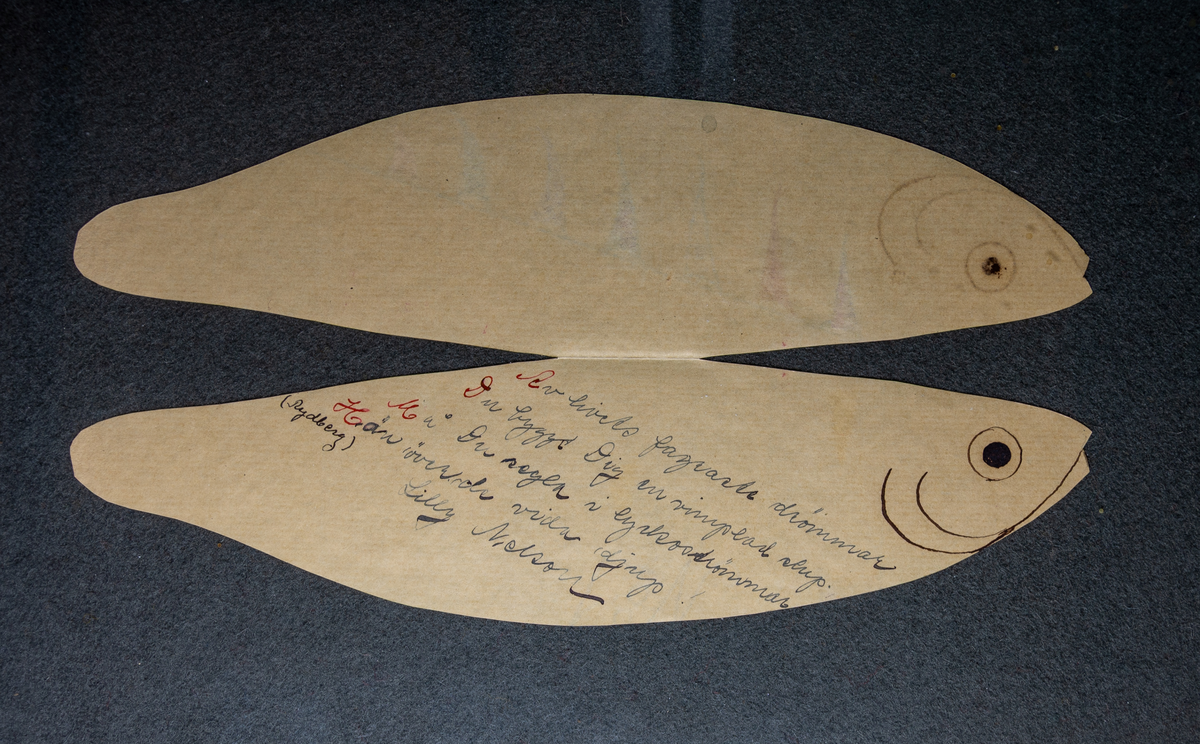 Av livets fagraste drömmar
Du byggt Dig en vimplad slup.
Må Du segla i lyckosdrömmar
Hän över de vida djup!
(Rydberg)
Lilly Nelson